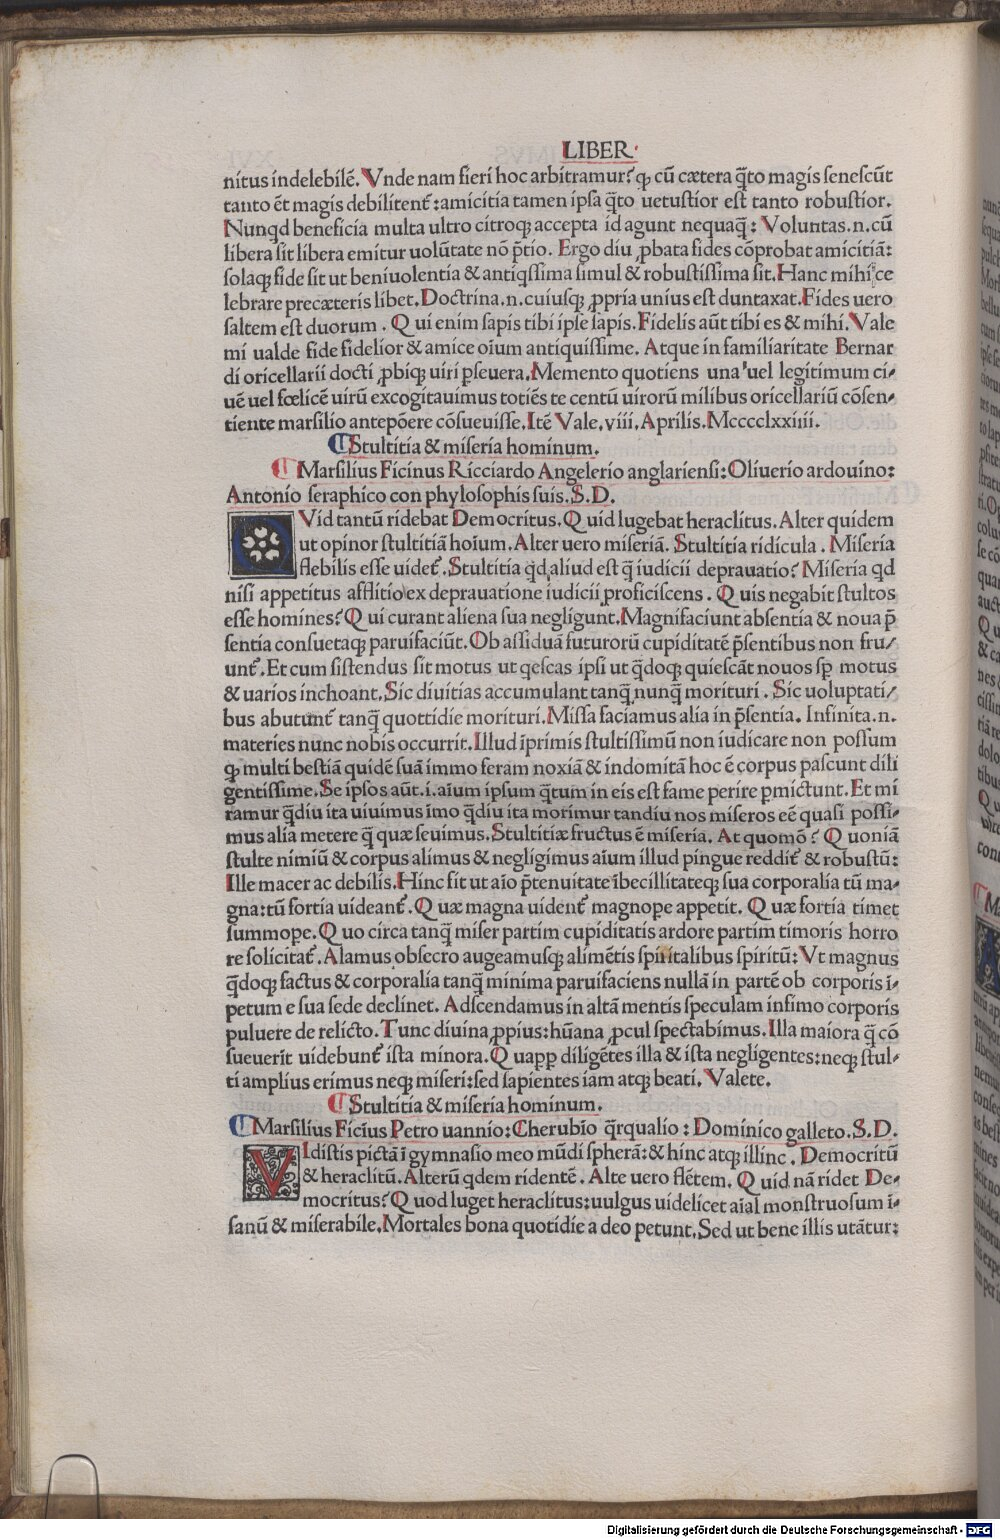 LIBER
nitus indelebilē. Vnde nam fieri hoc arbitramur? ꝙ cū cætera q̄to magis senescūt
tanto ēt magis debilitent᷑: amicitia tamen ipsa q̄to uetustior est tanto robustior.
Nunqd beneficia multa ultro citroqꝫ accepta id agunt nequaq̄: Voluntas .n. cū
libera sit libera emitur uolūtate nō p̄tio. Ergo diu ꝓbata fides cōprobat amicitiā:
solaqꝫ fide sit ut beniuolentia & antiqssima simul & robustissima sit. Hanc mihi ce
lebrare precæteris libet. Doctrina .n. cuiusqꝫ ꝓpria unius est duntaxat. Fides uero
saltem est duorum. Qui enim sapis tibi ipse sapis. Fidelis aūt tibi es & mihi. Vale
mi ualde fide fidelior & amice oīum antiquissime. Atque in familiaritate Bernar
di oricellarii docti ꝓbiqꝫ uiri ꝑseuera. Memento quotiens una uel legitimum ci-
uē uel fœlicē uirū excogitauimus totiēs te centū uirorū milibus oricellariū cōsen-
tiente marsilio antepōere cōsueuisse. Itē Vale. viii. Aprilis. Mcccclxxiiii.
Stultitia & miseria hominum.
Marsilius Ficinus Ricciardo Angelerio anglariensi: Oliuerio ardouino:
Antonio seraphico con phylosophis suis. S. D.
Vid tantū ridebat Democritus. Quid lugebat heraclitus. Alter quidem
ut opinor stultitiā hoīum. Alter uero miseriā. Stultitia ridicula. Miseria
flebilis esse uidet᷑. Stultitia qd aliud est q̄ iudicii deprauatio? Miseria qd
nisi appetitus afflitio ex deprauatione iudicii proficiscens. Quis negabit stultos
esse homines? Qui curant aliena sua negligunt. Magnifaciunt absentia & noua p̄
sentia consuetaqꝫ paruifaciūt. Ob assiduā futurorū cupiditatē p̄sentibus non fru/
unt᷑. Et cum sistendus sit motus ut qescas ipsi ut q̄doqꝫ quiescāt nouos sꝑ motus
& uarios inchoant. Sic diuitias accumulant tanq̄ nunq̄ morituri. Sic uoluptati/
bus abutunt᷑ tanq̄ quottidie morituri. Missa faciamus alia in p̄sentia. Infinita .n.
materies nunc nobis occurrit. Illud īprimis stultissimū non iudicare non possum
ꝙ multi bestiā quidē suā immo feram noxiā & indomitā hoc ē corpus pascunt dili
gentissime. Se ipsos aūt .i. aīum ipsum q̄tum in eis est fame perire ꝑmictunt. Et mi
ramur q̄diu ita uiuimus īmo q̄diu ita morimur tandiu nos miseros eē quasi possi-
mus alia metere q̄ quæ seuimus. Stultitiæ fructus ē miseria. At quomō? Quoniā
stulte nimiū & corpus alimus & negligimus aīum illud pingue reddit᷑ & robustū:
Ille macer ac debilis. Hinc fit ut aīo p̄tenuitate ībecillitateqꝫ sua corporalia tū ma-
gna: tū fortia uideant᷑. Quæ magna uident᷑ magnope appetit. Quæ fortia timet
summope. Quo circa tanq̄ miser partim cupiditatis ardore partim timoris horro
re solicitat᷑. Alamus obsecro augeamusqꝫ alimētis spiritalibus spiritū: Vt magnus
q̄doqꝫ factus & corporalia tanq̄ minima paruifaciens nullā in partē ob corporis i-
petum e sua sede declinet. Adscendamus in altā mentis speculam infimo corporis
puluere de relicto. Tunc diuina ꝓpius: hūana ꝓcul spectabimus. Illa maiora q̄ cō
sueuerit uidebunt᷑ ista minora. Quapp diligētes illa & ista negligentes: neqꝫ stul-
ti amplius erimus neqꝫ miseri: sed sapientes iam atqꝫ beati. Valete.
Stultitia & miseria hominum.
Marsilius Ficīus Petro uannio: Cherubio q̄rqualio: Dominico galleto. S. D.
VIdistis pictā ī gymnasio meo mūdi spherā: & hinc atqꝫ illinc. Democritū
& heraclitū. Alterū qdem ridentē. Alte uero flētem. Quid nā ridet De-
mocritus? Quod luget heraclitus: uulgus uidelicet aīal monstruosum i-
sanū & miserabile. Mortales bona quotidie a deo petunt. Sed ut bene illis utātur:
Digitalisierung gefördert durch die Deutsche Forschungsgemeinschaft - DFG